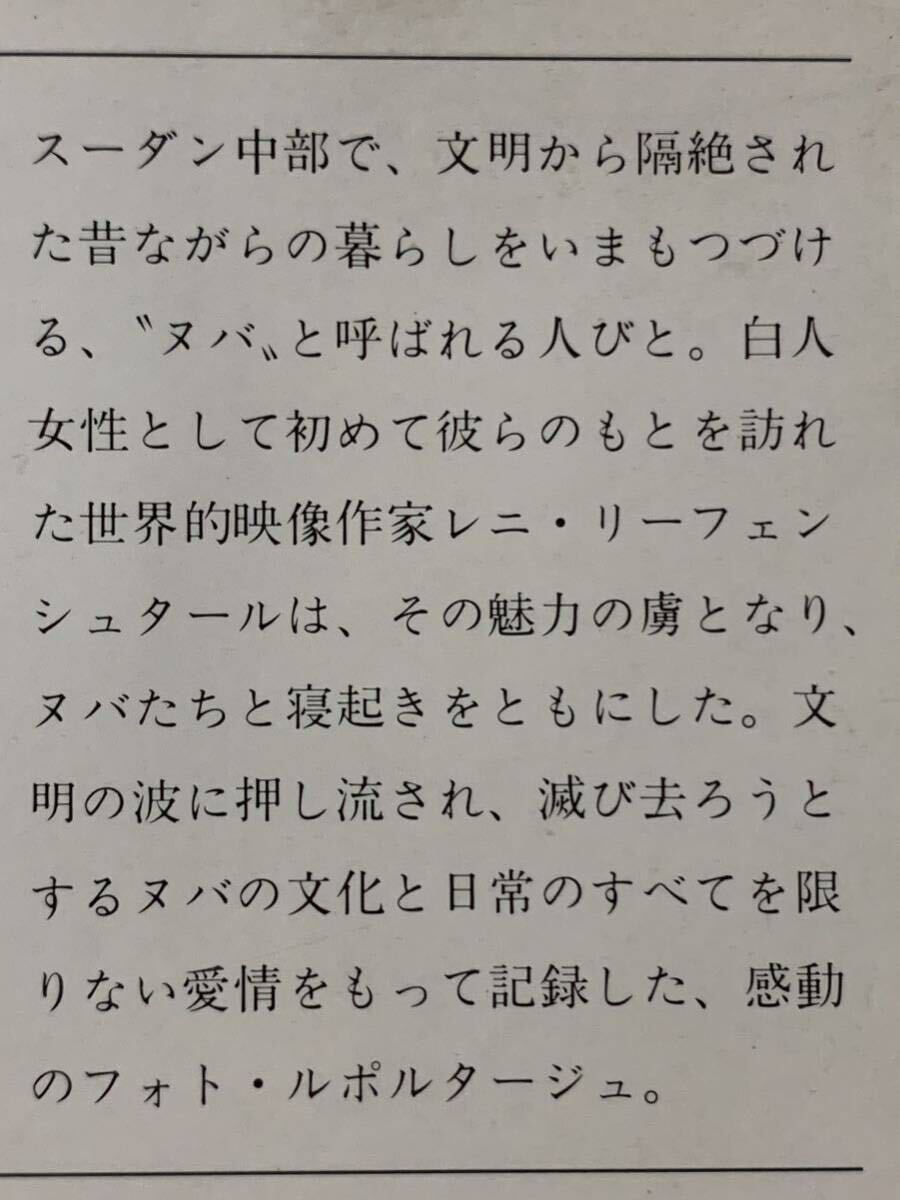 スーダン中部で、文明から隔絶され
た昔ながらの暮らしをいまもつづけ
る、〝ヌバ〟と呼ばれる人びと。白人
女性として初めて彼らのもとを訪れ
た世界的映像作家レニ・リーフェン
シュタールは、その魅力の虜となり、
ヌバたちと寝起きをともにした。文
明の波に押し流され、滅び去ろうと
するヌバの文化と日常のすべてを限
りない愛情をもって記録した、感動
のフォト・ルポルタージュ。